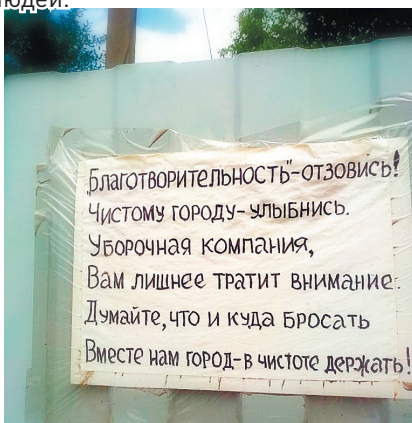 людей.
„Благотворительность"-отзовись!
Чистому городу-улыбнись.
Уборочная компания,
Вам лишнее тратит внимание.
Думайте,что и куда бросать
Вместе нам город-в чистоте держать!